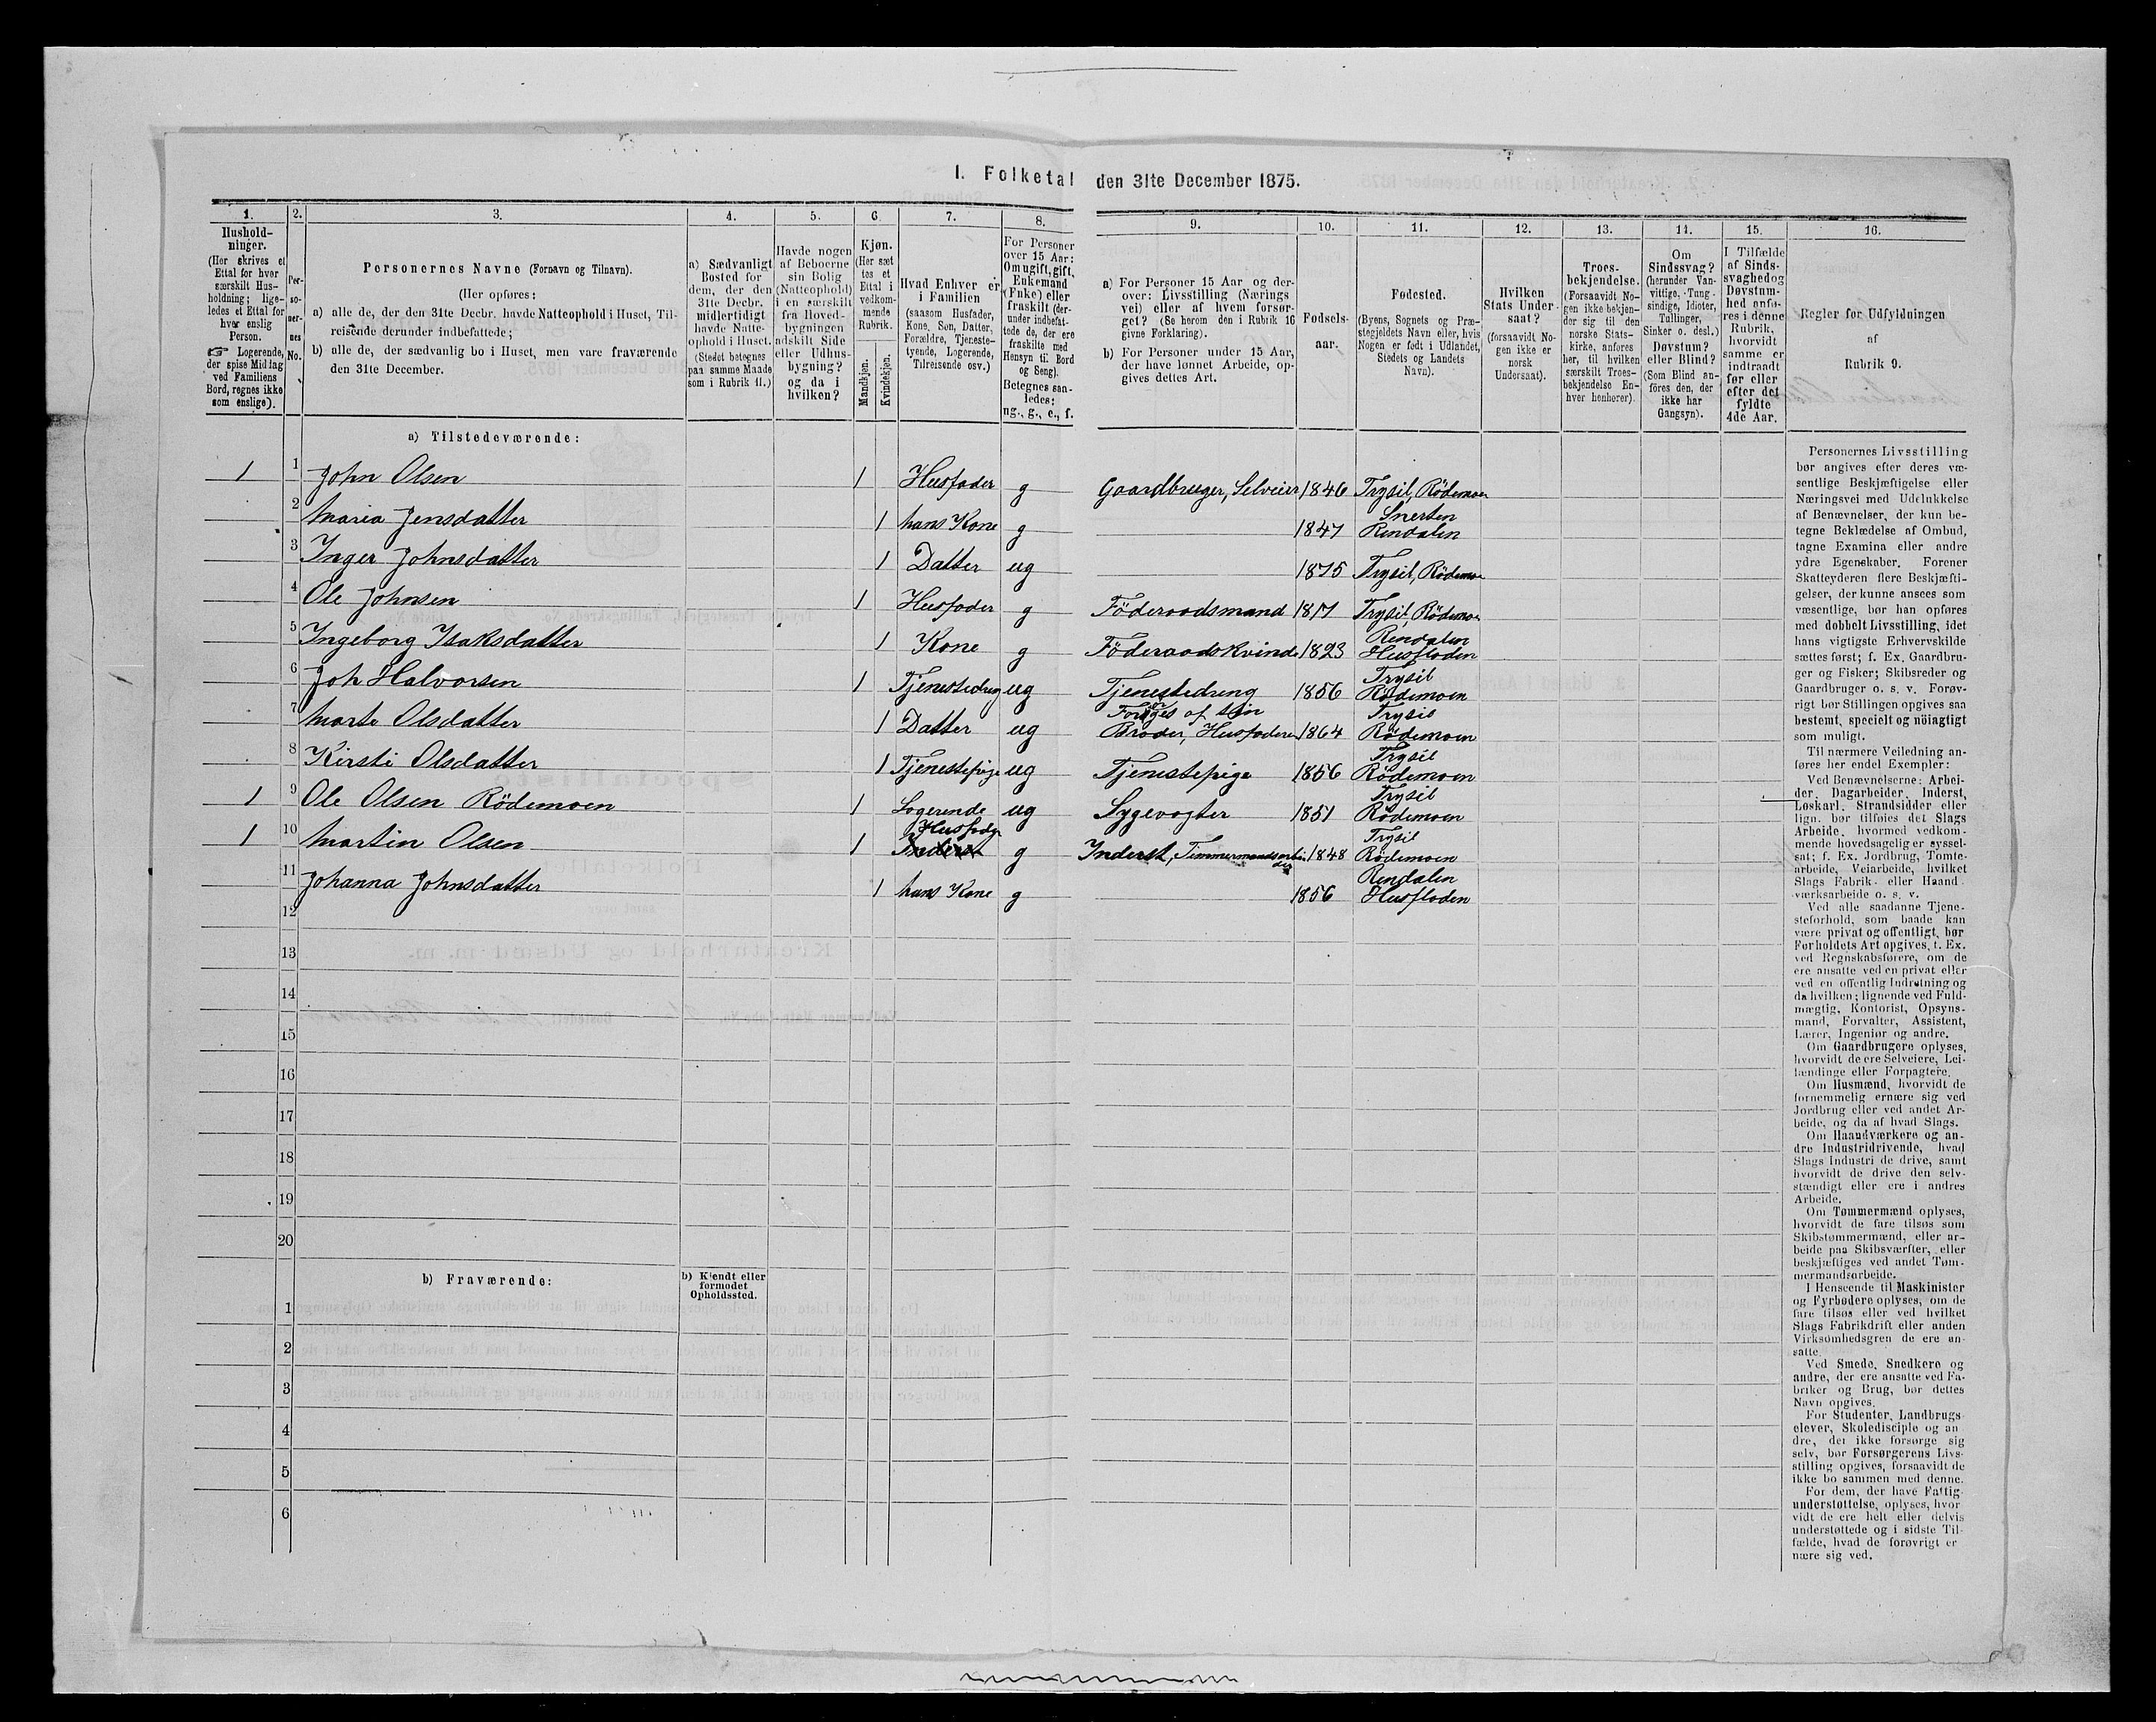 I. Folketal den 31te December 1875.
1. 2. 3. 4. 5. 6. 7. 8. 9. 10. 11. 12. 13. 14. 15. 16.
Hushold-
ninger.
(Her skrives et
Ettal for hver
særskilt Hus-
holdning; lige-
ledes et Ettal for
hver enslig
Person.
☞ Logerende,
der spise Middag
ved Familiens
Bord, regnes ikke
som enslige).
Per-
so-
ner-
nes
No.
Personernes Navne (Fornavn og Tilnavn).
(Her opføres:
a) alle de, der den 31te Decbr. havde Natteophold i Huset, Til-
reisende derunder indbefattede;
b) alle de, der sædvanlig bo i Huset, men vare fraværende
den 31te December.
a) Sædvanligt
Bosted for
dem, der den
31te Decbr.
midlertidigt
havde Natte-
ophold i Huset.
(Stedet betegnes
paa samme Maade
som i Rubrik 11.)
Havde nogen
af Beboerne
sin Bolig
(Natteophold)
i en særskilt
fra Hoved-
bygningen
adskilt Side
eller Udhus-
bygning?
og da i
hvilken?
Kjøn.
(Her sæt
tes et
Ettal i
vedkom-
mende
Rubrik.
Mandkjøn.
Kvindekjøn.
Hvad Enhver er
i Familien
(saasom Husfader,
Kone, Søn, Datter,
Forældre, Tjeneste-
tyende, Logerende,
Tilreisende osv.)
For Personer
over 15 Aar:
Om ugift, gift,
Enkemand
(Enke) eller
fraskilt (der-
under indbefat-
tede de, der ere
fraskilte med
Hensyn til Bord
og Seng).
Betegnes saa-
ledes:
ug., g., e., f.
a) For Personer 15 Aar og der-
over: Livsstilling (Nærings
vei) eller af hvem forsør-
get? (Se herom den i Rubrik 16
givne Forklaring).
b) For Personer under 15 Aar,
der have lønnet Arbeide, op-
gives dettes Art.
Fødsels-
aar.
Fødested.
(Byens, Sognets og Præ-
stegjeldets Navn eller, hvis
Nogen er født i Udlandet,
Stedets og Landets
Navn).
Hvilken
Stats Under-
saat?
(forsaavidt No-
gen ikke er
norsk
Undersaat).
Troes-
bekjendelse.
(Forsaavidt No-
gen ikke bekjen-
der sig til den
norske Stats-
kirke, anføres
her, til hvilken
særskilt Troes-
bekjendelse En-
hver henhører).
Om
Sindssvag?
(herunder Van-
vittige, Tung-
sindige, Idioter,
Tullinger,
Sinker o. desl.)
Døvstum?
eller Blind?
(Som Blind an-
føres den, der
ikke har
Gangsyn).
I Tilfælde
af Sinds-
svaghed og
Døvstum-
hed anfø-
res i denne
Rubrik,
hvorvidt
samme er
indtraadt
før eller
efter det
fyldte
4de Aar.
Regler for Udfyldningen
af
Rubrik 9.
a) Tilstedeværende:
1 1 John Olsen 1 Husfader g Gaardbruger, Selveier 1846 Trysil, Rödemoen
2 Maria Jensdatter 1 hans Kone g 1847 Snerten Rendalen
3 Inger Johnsdatter 1 Datter ug 1875 Trysil, Rödemoen
4 Ole Johnsen 1 Husfader g Föderaadsmand 1817 Trysil, Rödemoen
5 Ingeborg Isaksdatter 1 Kone g Föderaadskvinde 1823 Rendalen Husfloden
6 Joh Halvorsen 1 Tjenestedreng ug Tjenestedreng 1856 Trysil Rödemoen
7 Marte Olsdatter 1 Datter ug Forsörges af sin Broder, Husfaderen 1864 Trysil Rödemoen
8 Kirsti Olsdatter 1 Tjenestepige ug Tjenestepige 1856 Trysil Rödemoen
1 9 Ole Olsen Rödemoen 1 Logerende ug Sygevogter 1851 Trysil Rödemoen
1 10 Martin Olsen 1 Husfader Inderst g Inderst, Tømmermandsarbeider 1848 Trysil Rödemoen
11 Johanna Johnsdatter 1 hans Kone g 1856 Rendalen Husfloden
12
13
14
15
16
17
18
19
20
b) Fraværende:
b) Kjendt eller
formodet
Opholdssted.
1
2
3
4
5
6
Personernes Livsstilling
bør angives efter deres væ-
sentlige Beskjæftigelse eller
Næringsvei med Udelukkelse
af Benævnelser, der kun be-
tegne Beklædelse af Ombud,
tagne Examina eller andre
ydre Egenskaber. Forener
Skatteyderen flere Beskjæfti-
gelser, der kunne ansees som
væsentlige, bør han opføres
med dobbelt Livsstilling, idet
hans vigtigste Erhvervskilde
sættes først; f. Ex. Gaardbru-
ger og Fisker; Skibsreder og
Gaardbruger o. s. v. Forøv-
rigt bør Stillingen opgives saa
bestemt, specielt og nöiagtigt
som muligt.
Til nærmere Veiledning an-
føres her endel Exempler:
Ved Benævnelserne: Arbei-
der, Dagarbeider, Inderst,
Løskarl, Strandsidder eller
lign. bør tilføies det Slags
Arbeide, hvormed vedkom-
mende hovedsagelig er syssel-
sat; f. Ex. Jordbrug, Tomte-
arbeide, Veiarbeide, hvilket
Slags Fabrik- eller Haand-
værksarbeide o. s. v.
Ved alle saadanne Tjene-
steforhold, som baade kan
være privat og offentligt, bør
Forholdets Art opgives, t. Ex.
ved Regnskabsførere, om de
ere ansatte ved en privat eller
ved en offentlig Indretning og
da hvilken; lignende ved Fuld-
mægtig, Kontorist, Opsyns-
mand, Forvalter, Assistent,
Lærer, Ingeniør og andre.
Om Gaardbrugere oplyses,
hvorvidt de ere Selveiere, Lei-
lændinge eller Forpagtere.
Om Husmænd, hvorvidt de
fornemmelig ernære sig ved
Jordbrug eller ved andet Ar-
beide, og da af hvad Slags.
Om Haandværkere og an-
dre Industridrivende, hvad
Slags Industri de drive, samt
hvorvidt de drive den selv-
stændigt eller ere i andres
Arbeide.
Om Tømmermænd oplyses,
hvorvidt de fare tilsøs som
Skibstømmermænd, eller ar-
beide paa Skibsværfter, eller
beskjæftiges ved andet Tøm-
mermandsarbeide.
I Henseende til Maskinister
og Fyrbødere oplyses, om de
fare tilsøs eller ved hvilket
Slags Fabrikdrift eller anden
Virksomhedsgren de ere an-
satte.
Ved Smede, Snedkere og
andre, der ere ansatte ved Fa-
briker og Brug, bør dettes
Navn opgives.
For Studenter, Landbrugs-
elever, Skoledisciple og an
dre, der ikke forsørge sig
selv, bør Forsørgerens Livs-
stilling opgives, forsaavidt de
ikke bo sammen med denne.
For dem, der have Fattig-
understøttelse, oplyses, hvor
vidt de ere helt eller delvis
understøttede og i sidste Til-
fælde, hvad de forøvrigt er
nære sig ved.